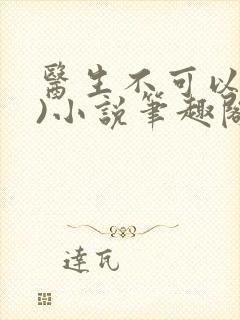 醫生不可以
)小說筆趣閣
達瓦